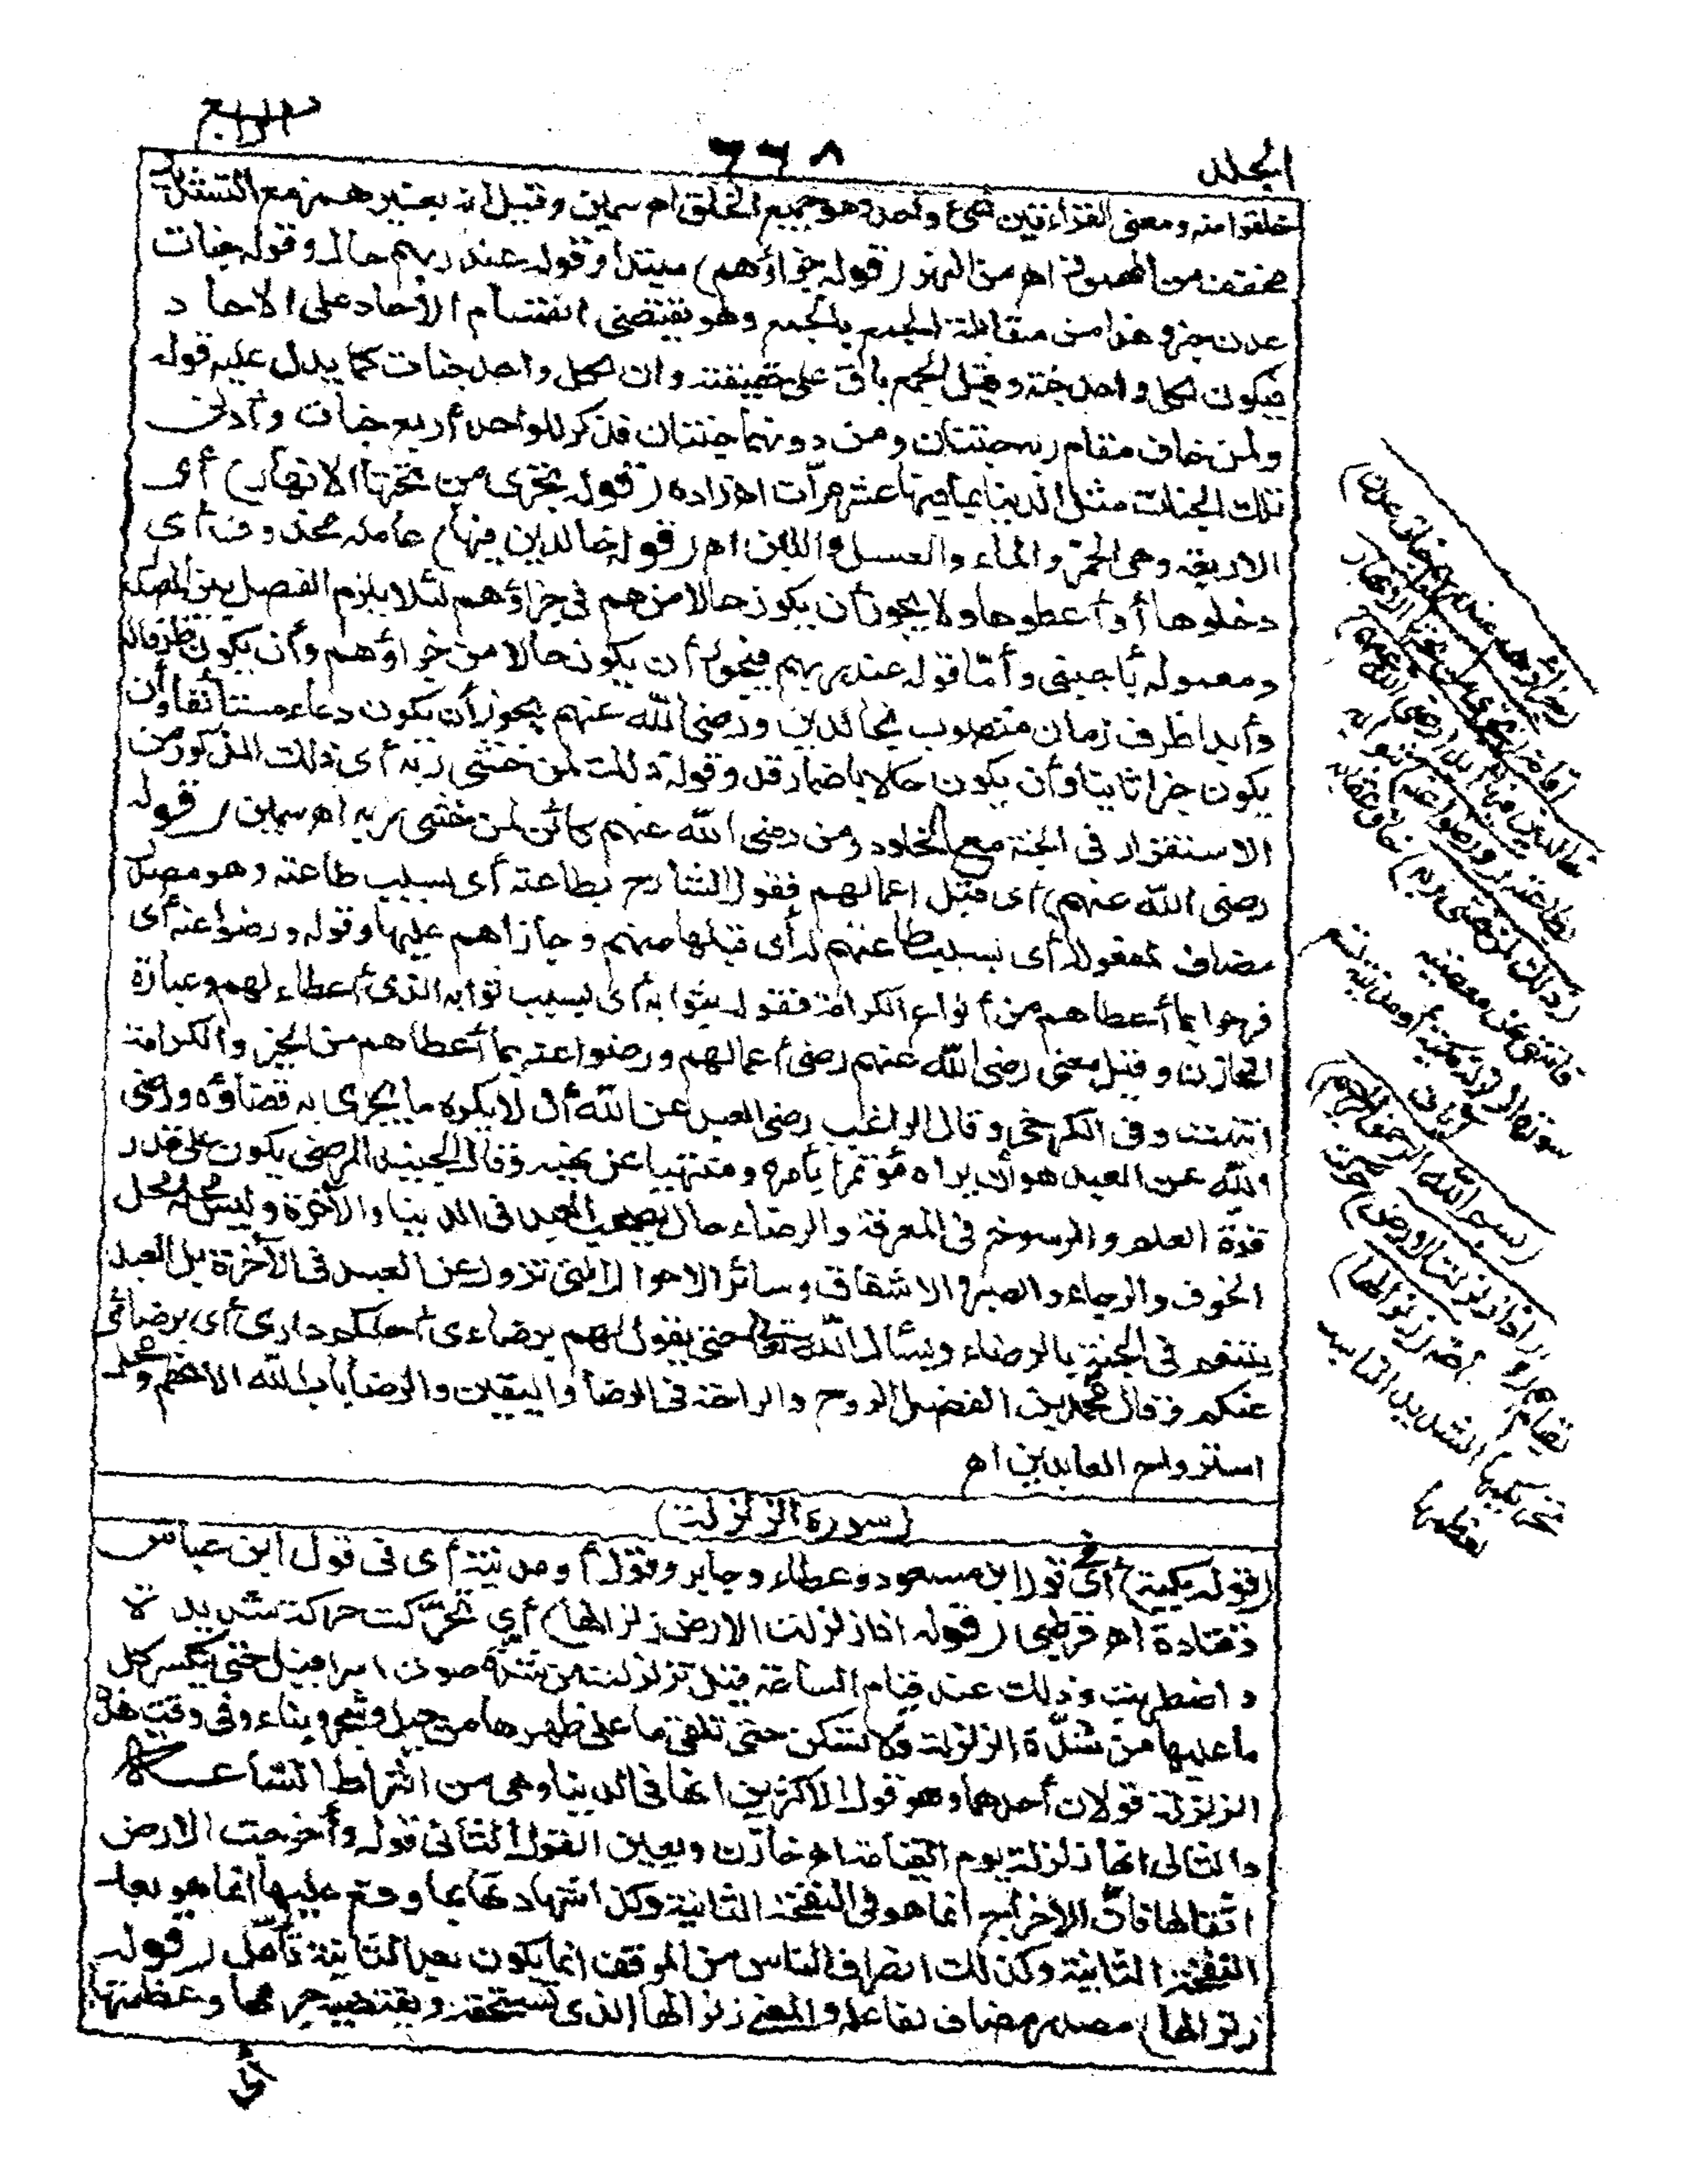 الرابع
٦٦٨
الجلد
خلقوا منه ومعنى القراءتين شئ واحد وهو جميع الخلق اه سمين وقيل انه بغير همز مع التشديد
مخفف من المهموز اه من النهر (قوله جزاؤهم) مبتدا وقوله عند ربهم حال وقوله جنات
عدن خبر وهذا من مقابلة الجمع بالجمع وهو يقتضى انقسام الآحاد على الآحاد
فيكون لكل واحد جنة وقيل الجمع باق على حقيقته وان لكل واحد جنات كما يدل عليه قوله
ولمن خاف مقام ربه جنتان ومن دونهما جنتان فذكر للواحد أربع جنات وأدنى
تلك الجنات مثل الدنيا بما فيها عشر مرّات اه زاده (قوله تجرى من تحتها الانهار) أى
الاربعة وهى الخمر والماء والعسل واللبن اه (قوله خالدين فيها) عامله محذوف أى
دخلوها أو أعطوها ولا يجوز أن يكون حالا من هم فى جزاؤهم لئلا يلزم الفصل بين المصدر
ومعموله بأجنبى وأمّا قوله عند ربهم فيجوز أن يكون حالا من جزاؤهم وأن يكون ظرفا له
وأبدا ظرف زمان منصوب بخالدين ورضى الله عنهم يجوز أن يكون دعاء مستأنفا وأن
يكون خبرا ثانيا وأن يكون حالا باضمار قد وقوله ذلك لمن خشى ربه أى ذلك المذكور من
الاستقرار فى الجنة مع الخلود ومن رضى الله عنهم كائن لمن خشى ربه اه سمين (قوله
رضى الله عنهم) أى قبل اعمالهم فقول الشارح بطاعته أى بسبب طاعته وهو مصدر
مضاف لمفعوله أى بسبب طاعتهم له أى قبلها منهم وجازاهم عليها وقوله ورضوا عنه أى
فرحوا بما أعطاهم من أنواع الكرامة فقوله بثوابه أى بسبب ثوابه الذى أعطاه لهم وعبارة
الخازن وقيل معنى رضى الله عنهم رضى أعمالهم ورضوا عنه بما أعطاهم من الخير والكرامة
انتهت وفى الكرخى وقال الراغب رضى العبد عن الله أن لا يكره ما يجرى به قضاؤه ورضى
الله عن العبد هو أن يراه مؤتمرا بأمره ومنتهيا عن نهيه وقال الجنيد الرضى يكون على قدر
قوّة العلم والرسوخ فى المعرفة والرضاء حال يصحب العبد فى الدنيا والآخرة وليس محله محل
الخوف والرجاء والصبر والاشفاق وسائر الاحوال التى تزول عن العبد فى الآخرة بل العبد
يتنعم فى الجنة بالرضاء ويسأل الله تعالى حتى يقول لهم برضاءى أحلكم دارى أى برضائى
عنكم وقال محمد بن الفضيل الروح والراحة فى الرضا واليقين والرضا باب الله الاعظم ومحل
استرواح العابدين اه
(سورة الزلزلت)
(قوله مكية) أى فى قول ابن مسعود وعطاء وجابر وقوله أو مدنية أى فى قول ابن عباس
وقتادة اه قرطبى (قوله اذا زلزلت الارض زلزالها) أي تحرّكت حركة شديدة
واضطربت وذلك عند قيام الساعة قيل تزلزلت من شدّة صوت اسرافيل حتى ينكسر كل
ما عليها من شدّة الزلزلة ولا تسكن حتى تلقى ما على ظهرها من جبل وشجر وبناء وفى وقت هذه
الزلزلة قولان أحدهما وهو قول الاكثرين انها فى الدنيا وهى من اشراط الساعة
والثانى انها زلزلة يوم القيامة اه خازن ويعين القول الثانى قوله وأخرجت الارض
اثقالها فانّ الاخراج انما هو فى النفخة الثانية وكذا شهادتها بما وقع عليها انما هو بعد
النفخة الثانية وكذلك انصراف الناس من الموقف انما يكون بعد الثانية تأمّل (قوله
زلزالها) مصدر مضاف لفاعله والمعنى زلزالها الذى تستحقه ويقتضيه جرمها وعظمتها
أى
(جزاؤهم عند ربهم جنات عدن)
اقامة (تجرى من تحتها الانهار
خالدين فيها أبدا رضى الله عنهم)
بطاعته (ورضوا عنه) بثوابه
(ذلك لمن خشى ربه) خاف عقابه
فانتهى عن معصيته
سورة الزلزلة مكية أو مدنية تسع
آيات
(بسم الله الرحمن الرحيم)
(اذا زلزلت الارض) حركت
لقيام الساعة (زلزالها)
تحريكها الشديد المناسب
لعظمها